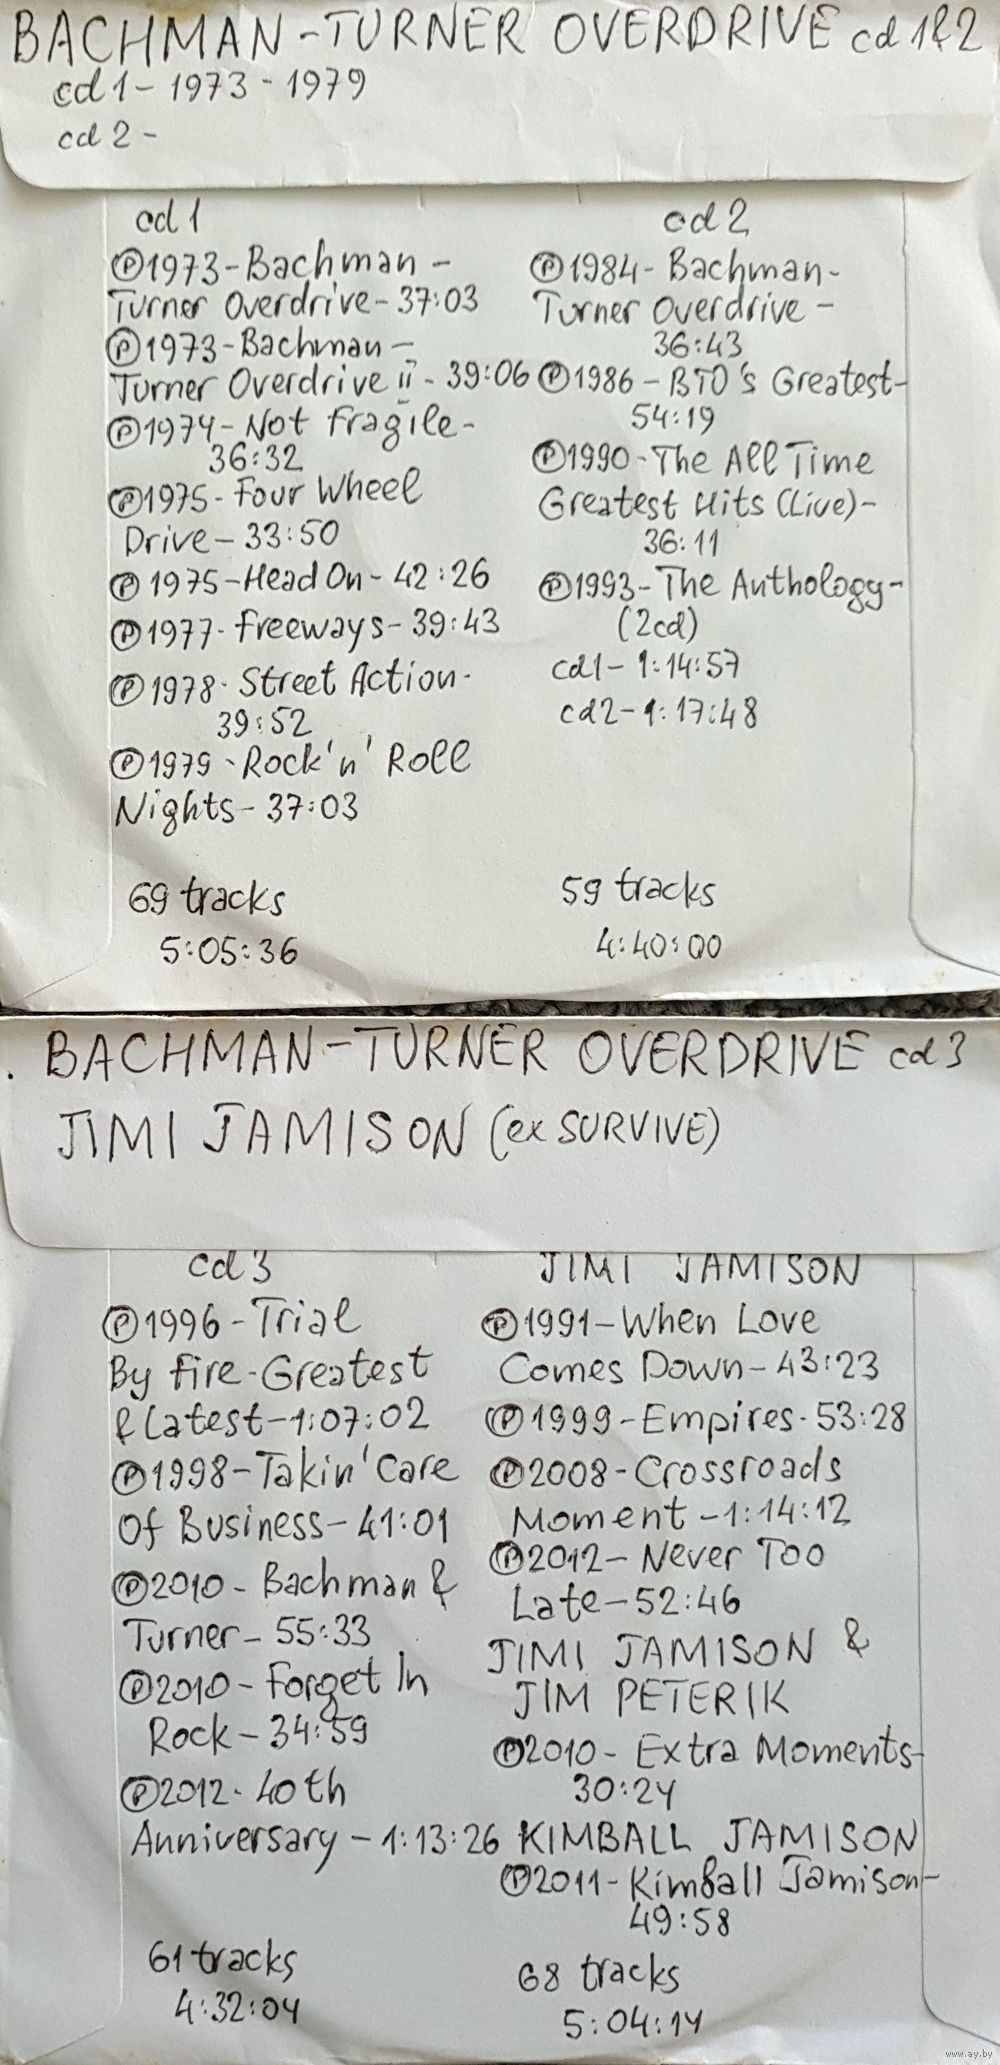 BACHMAN-TURNER OVERDRIVE cd 1&2
cd 1 - 1973 - 1979
cd 2 -
cd 1
Ⓟ1973-Bachman -
Turner Overdrive - 37:03
Ⓟ1973-Bachman -
Turner Overdrive ii - 39:06
Ⓟ1974-Not Fragile-
36:32
Ⓟ1975-Four Wheel
Drive - 33:50
Ⓟ1975-Head On - 42:26
Ⓟ1977-Freeways - 39:43
Ⓟ1978-Street Action-
39:52
Ⓟ1979-Rock'n'Roll
Nights - 37:03
69 tracks
5:05:36
cd 2
Ⓟ1984-Bachman-
Turner Overdrive -
36:43
Ⓟ1986-BTO's Greatest-
54:19
Ⓟ1990-The All Time
Greatest Hits (Live)-
36:11
Ⓟ1993-The Anthology-
(2cd)
cd1-1:14:57
cd2-1:17:48
59 tracks
4:40:00
BACHMAN-TURNER OVERDRIVE cd 3
JIMI JAMISON (ex SURVIVE)
cd 3
Ⓟ1996-Trial
By Fire-Greatest
& Latest-1:07:02
Ⓟ1998-Takin' Care
Of Business - 41:01
Ⓟ2010-Bachman &
Turner - 55:33
Ⓟ2010-Forget In
Rock - 34:59
Ⓟ2012-40th
Anniversary - 1:13:26
61 tracks
4:32:04
JIMI JAMISON
Ⓟ1991-When Love
Comes Down - 43:23
Ⓟ1999-Empires-53:28
Ⓟ2008-Crossroads
Moment - 1:14:12
Ⓟ2012-Never Too
Late - 52:46
JIMI JAMISON &
JIM PETERIK
Ⓟ2010-Extra Moments-
30:24
KIMBALL JAMISON
Ⓟ2011-Kimball Jamison-
49:58
68 tracks
5:04:14
www.ay.by